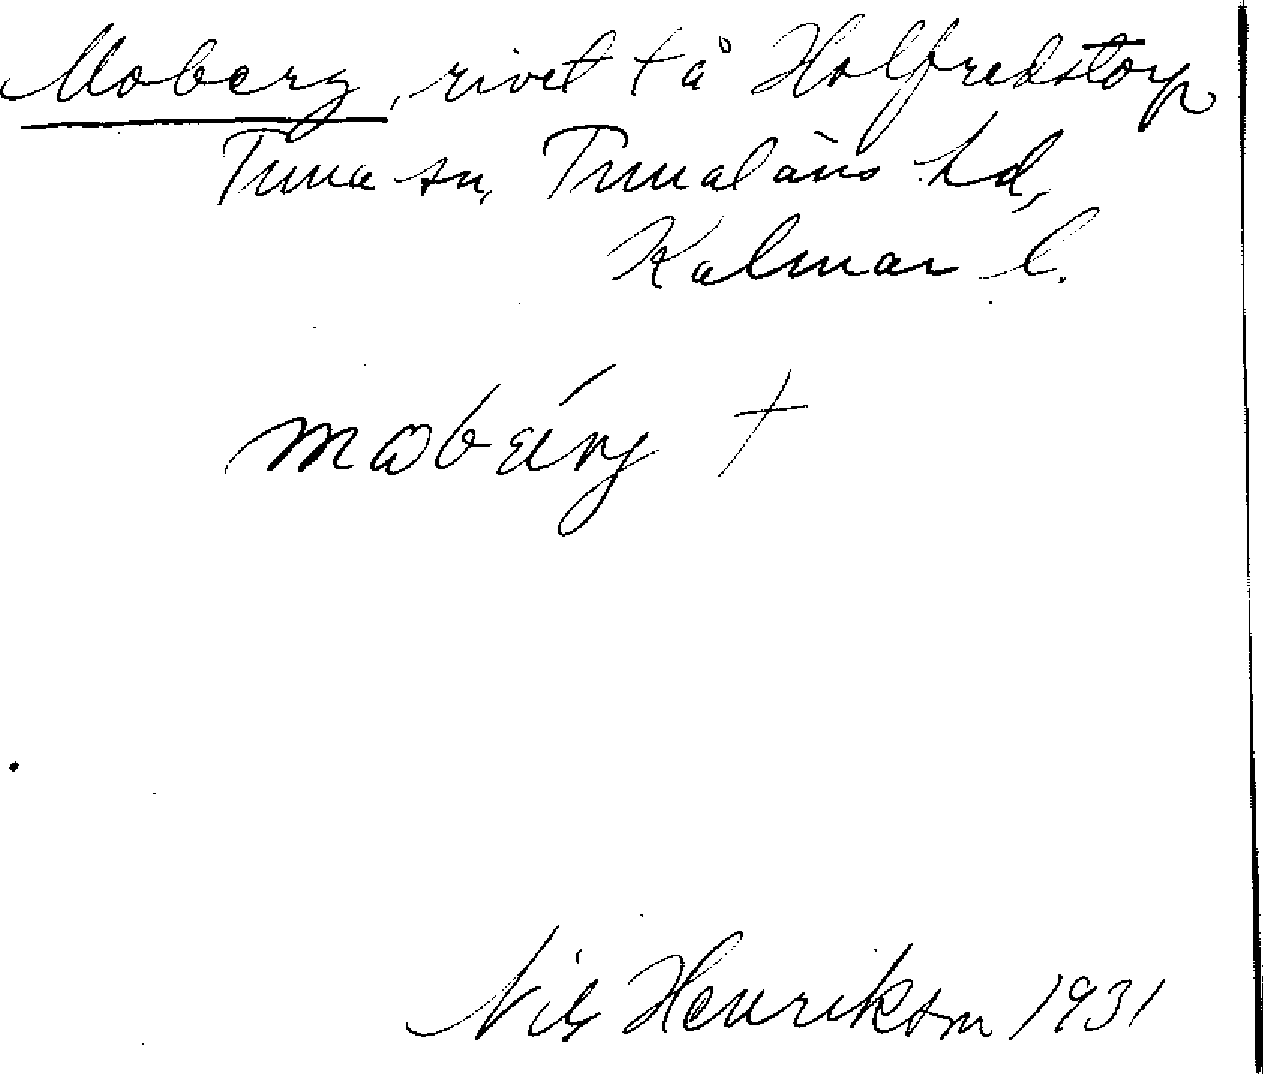 Moberg, rivet t å Holfredstorp
Tuna sn, Tunaläns hd,
Kalmar l.
mobærg +
Nils Henrikson 1931